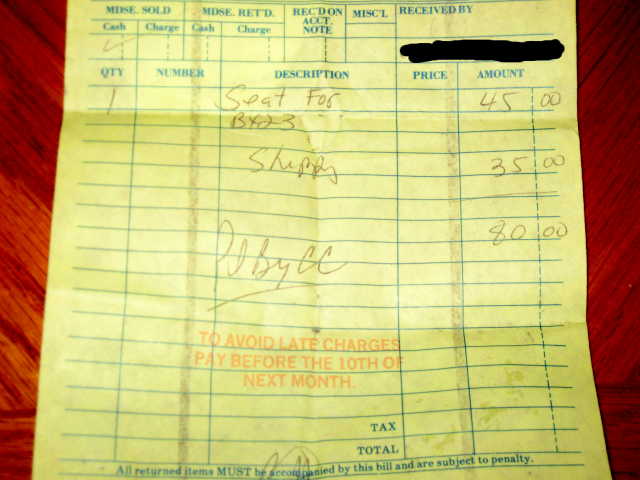 MDSE. SOLD MDSE. RET'D. REC'D ON ACCT. NOTE MISC'L RECEIVED BY
Cash Charge Cash Charge
QTY NUMBER DESCRIPTION PRICE AMOUNT
1 Seat For 45 00
BX23
Shipping 35 00
80 00
Pd By CC
TO AVOID LATE CHARGES
PAY BEFORE THE 10TH OF
NEXT MONTH.
TAX
TOTAL
All returned items MUST be accompanied by this bill and are subject to penalty.